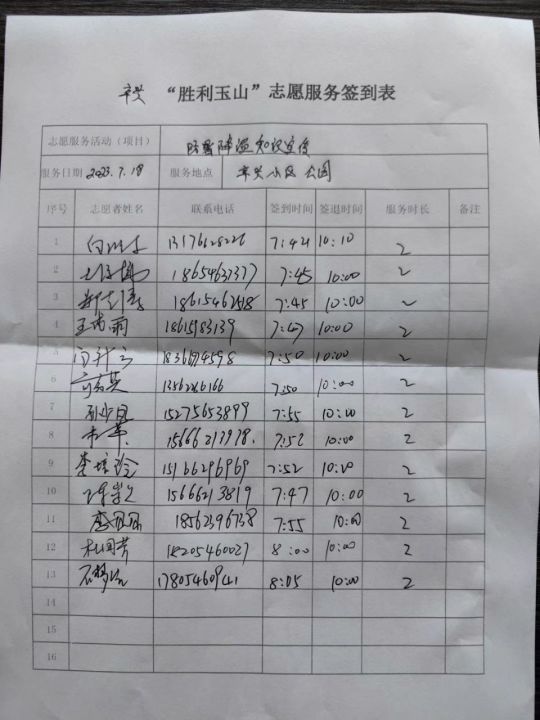 “胜利玉山”志愿服务签到表
志愿服务活动（项目） 防暑降温知识宣传
服务日期 2023.7.18 服务地点 小区 公园
序号 志愿者姓名 联系电话 签到时间 签退时间 服务时长 备注
1 13176628226 7:42 10:10 2
2 18654637377 7:45 10:00 2
3 7:45 10:00 2
4 王尚雨 18615983139 7:47 10:00 2
5 7:50 10:00 2
6 7:50 10:00 2
7 15275653899 7:55 10:00 2
8 7:52 10:00 2
9 李培玲 15166296969 7:52 10:00 2
10 15666213819 7:47 10:00 2
11 18562396738 7:55 10:00 2
12 杜国芳 18205460027 8:00 10:00 2
13 17805460941 8:05 10:00 2
14
15
16